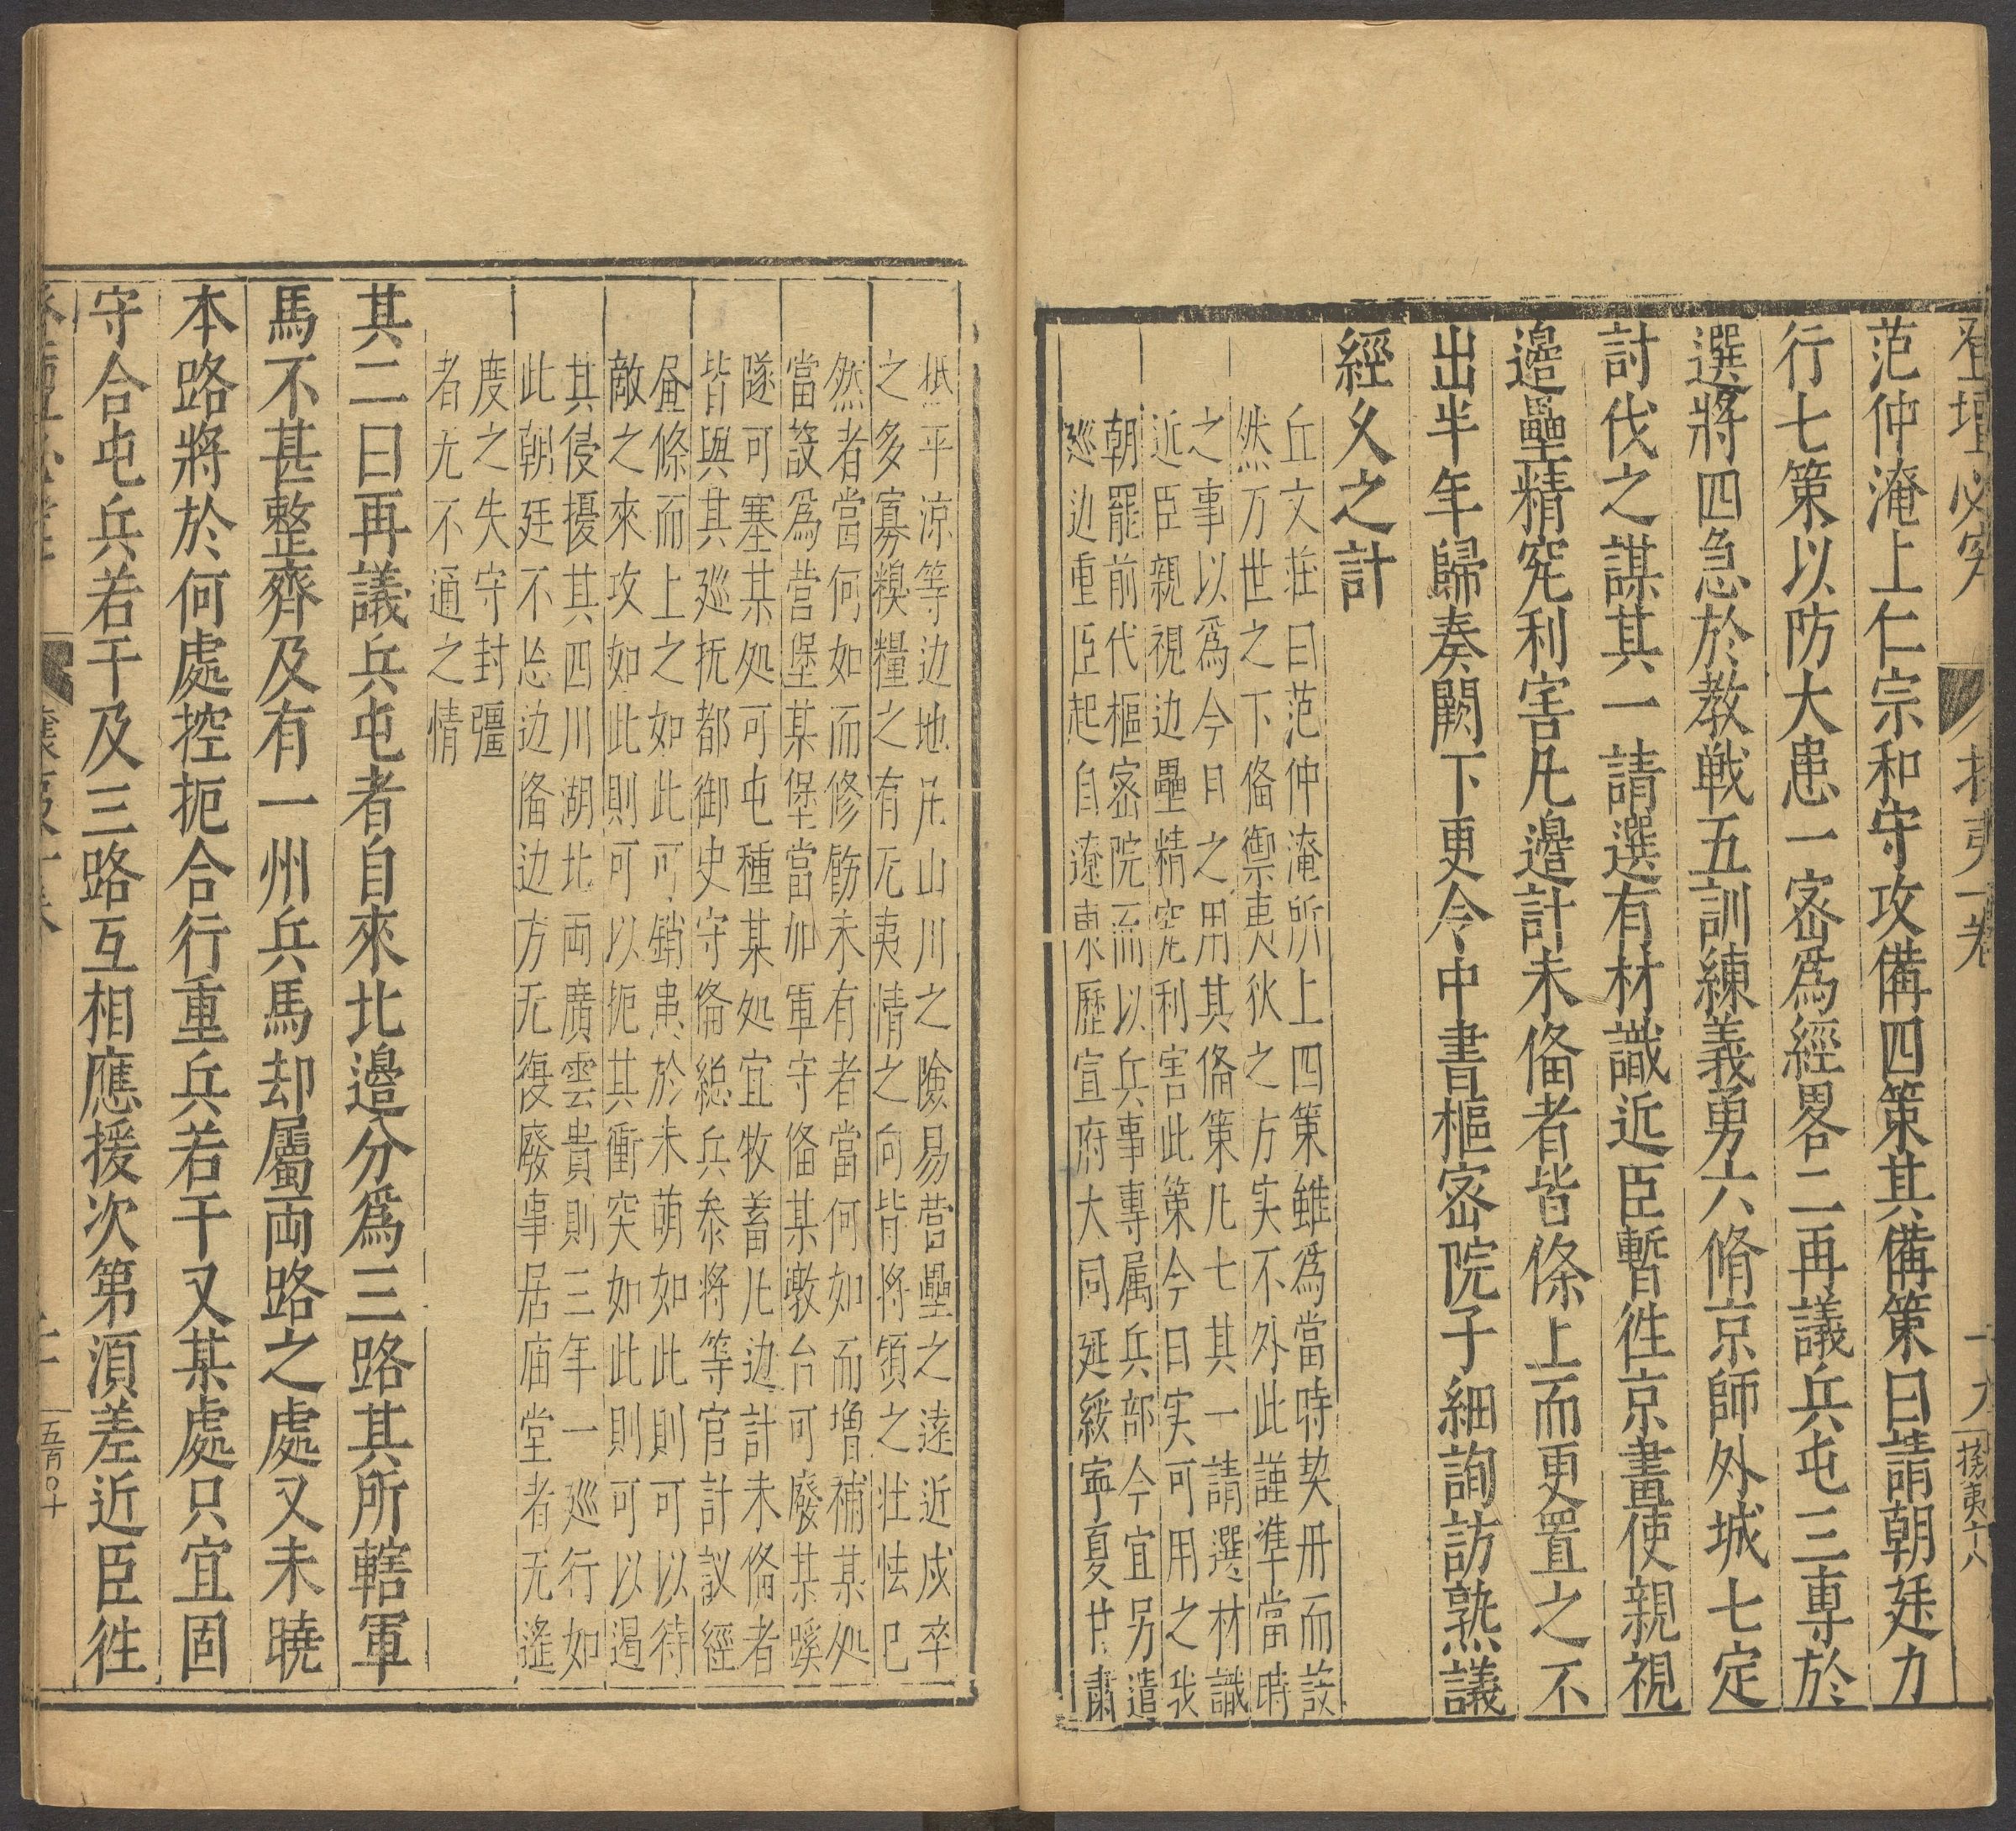 登壇必究
卷一
十九
范仲淹上仁宗和守攻備四策其備策曰請朝廷力
行七策以防大患一宻爲經畧二再議兵屯三專於
選將四急於教戰五訓練義勇六脩京師外城七定
討伐之謀其一請選有材識近臣暫徃京畫使親視
邊壘精究利害凡邊計未俻者皆條上而更置之不
出半年歸奏闕下更令中書樞宻院子細詢訪熟議
經久之計
丘文莊曰范仲淹所上四策雖爲當時契丹而設
然万世之下俻禦夷狄之方实不外此謹準當時
之事以爲今日之用其俻策凡七其一請選材識
近臣親視边壘精究利害此策今日实可用之我
朝罷前代樞宻院而以兵事專属兵部今宜另遣
廵边重臣起自遼東歷宣府大同延綏寧夏甘肅
抵平涼等边地凡山川之險易营壘之遠近戍卒
之多寡糗糧之有无夷情之向背將領之壯怯已
然者當何如而修飭未有者當何如而增補某処
當設爲营堡某堡當加軍守俻某墩台可廢某蹊
隧可塞某処可屯種某処宜牧蓄凡边計未俻者
皆與其廵抚都御史守俻総兵叅将等官計议經
畫條而上之如此可銷患於未萌如此則可以待
敵之來攻如此則可以扼其衝突如此則可以遏
其侵擾其四川湖北両廣雲貴則三年一廵行如
此朝廷不忘边俻边方无復廢事居庙堂者无遙
度之失守封疆
者无不通之情
其二曰再議兵屯者自來北邊分爲三路其所轄軍
馬不甚整齊及有一州兵馬却屬両路之處又未曉
本路將於何處控扼合行重兵若干又某處只宜固
守合屯兵若干及三路互相應援次第湏差近臣徃
五百〇十